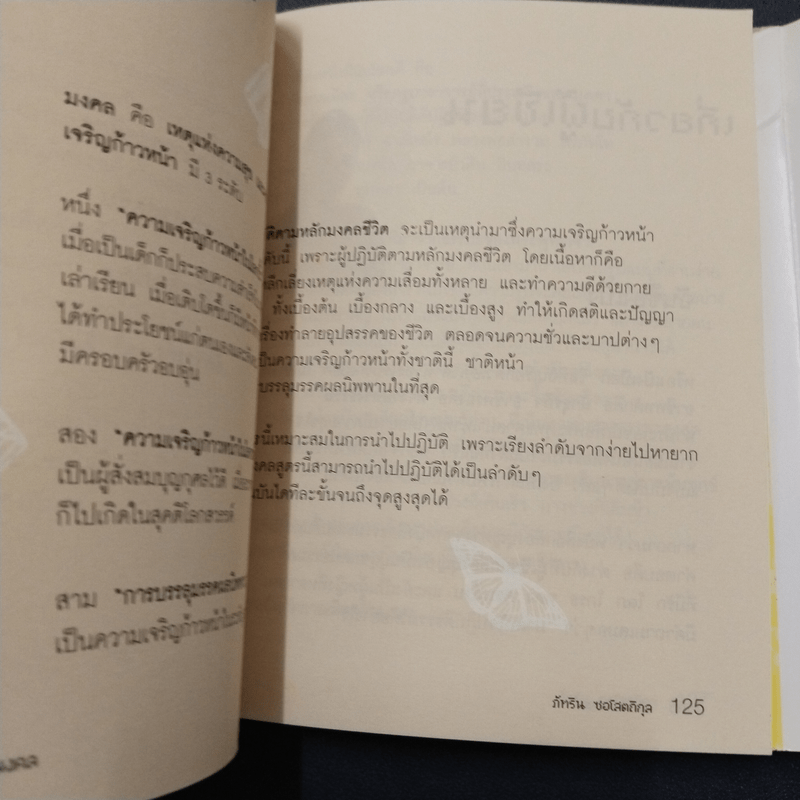 มงคล คือ เหตุแห่งความสุข
เจริญก้าวหน้า มี 3 ระดับ
หนึ่ง "ความเจริญก้าวหน้าใน
เมื่อเป็นเด็กก็ประสบความสำเร็จ
เล่าเรียน เมื่อเติบโตขึ้นก็
ได้ทำประโยชน์แก่ตนเองและ
มีครอบครัวอบอุ่น
สอง "ความเจริญก้าวหน้าใน
เป็นผู้สั่งสมบุญกุศลไว้ดี เมื่อ
ก็ไปเกิดในสุคติโลกสวรรค์
สาม "การบรรลุมรรคผลนิพพาน
เป็นความเจริญก้าวหน้าใน
มงคล
ติตามหลักมงคลชีวิต จะเป็นเหตุนำมาซึ่งความเจริญก้าวหน้า
ดับนี้ เพราะผู้ปฏิบัติตามหลักมงคลชีวิต โดยเนื้อหาก็คือ
ลีกเลี่ยงเหตุแห่งความเสื่อมทั้งหลาย และทำความดีด้วยกาย
ทั้งเบื้องต้น เบื้องกลาง และเบื้องสูง ทำให้เกิดสติและปัญญา
รื่องทำลายอุปสรรคของชีวิต ตลอดจนความชั่วและบาปต่างๆ
ป็นความเจริญก้าวหน้าทั้งชาตินี้ ชาติหน้า
บรรลุมรรคผลนิพพานในที่สุด
งนี้เหมาะสมในการนำไปปฏิบัติ เพราะเรียงลำดับจากง่ายไปหายาก
งคลสูตรนี้สามารถนำไปปฏิบัติได้เป็นลำดับๆ
นบันไดทีละขั้นจนถึงจุดสูงสุดได้
ภัทริน ซอโสตถิกุล 125